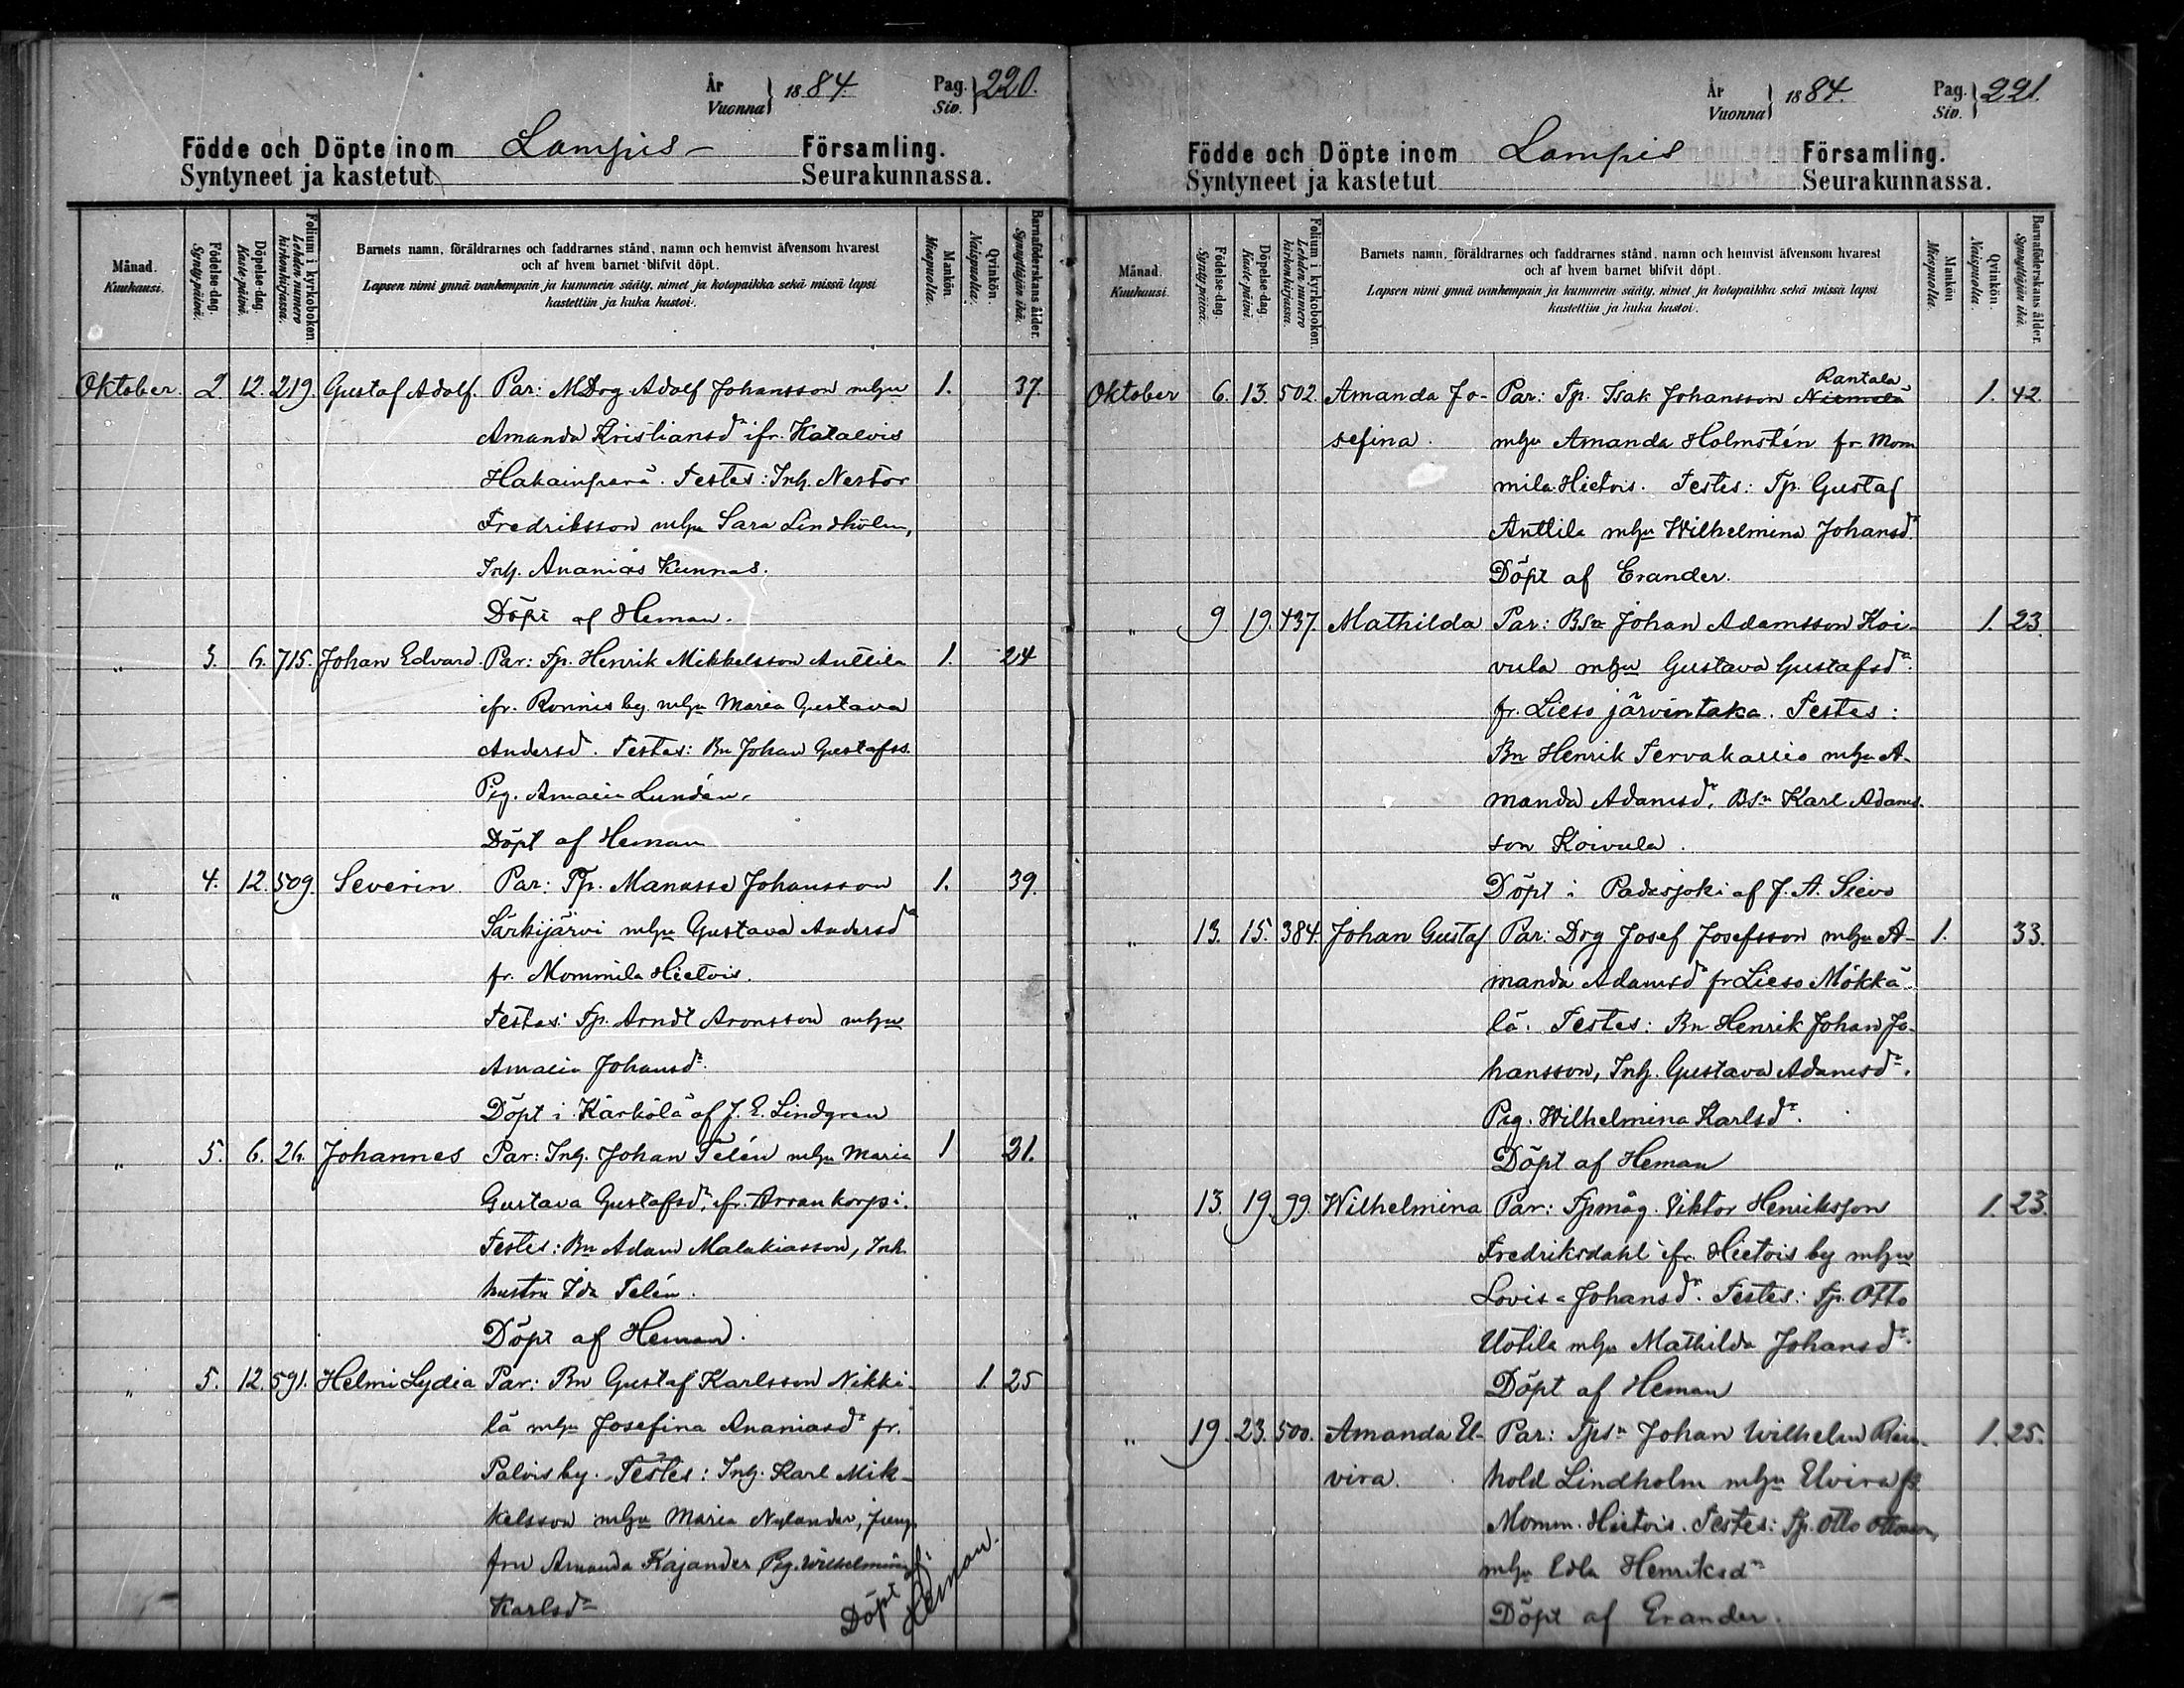 År Vuonna } 1884. Pag. Siv. } 220.
Födde och Döpte inom Lampis Församling.
Syntyneet ja kastetut Seurakunnassa.
Månad. Kuukausi.
Födelse-dag. Synty-päivä.
Döpelse-dag. Kaste-päivä.
Folium i kyrkoboken Lehden numero kirkonkirjassa.
Barnets namn, föräldrarnes och faddrarnes stånd, namn och hemvist äfvensom hvarest
och af hvem barnet blifvit döpt.
Lapsen nimi ynnä vanhempain ja kummein sääty, nimet ja kotopaikka sekä missä lapsi
kastettiin ja kuka kastoi.
Mankön. Miespuolta.
Qvinkön. Naispuolta.
Barnaföderskans ålder. Synnyttäjän ikä.
Oktober. 2. 12. 219. Gustaf Adolf. Par: MDrg Adolf Johansson mhu 1. 37.
Amanda Kristiansdr ifr. Kataloois
Hakainperä. Testes: Inh. Nestor
Fredriksson mhu Sara Lindholm,
Inh. Ananias Kunnas.
Döpt af Heman.
" 3. 6. 715. Johan Edvard Par: Tp. Henrik Mikkelsson Anttila 1. 24
ifr. Ronnis by. mhu Maria Gustava
Andersd. Testes: Bn Johan Gustafss.
Pig. Amalia Lundén.
Döpt af Heman
" 4. 12. 509. Severin Par: Tp. Manasse Johansson 1. 39.
Särkijärvi mhu Gustava Andersdr
fr. Mommila Hietois.
Testes: Tp. Arndt Aronsson mhu
Amalia Johansdr.
Döpt i Kärkölä af J. E. Lindgren
" 5. 6. 26. Johannes Par: Inh. Johan Telén mhu Maria 1 21.
Gustava Gustafsdr. ifr. Arrankorpi.
Testes: Bn Adam Malakiasson, Inh.
hustru Ida Telén.
Döpt af Heman.
" 5. 12. 591. Helmi Lydia Par: Bn Gustaf Karlsson Nikki- 1. 25
lä mhu Josefina Ananiasdr fr.
Palvis by. Testes: Inh. Karl Mik-
kelsson mhu Maria Nylander, jung-
fru Amanda Kajander Pig. Wilhelmina
Karlsdr
Döpt af Heman.
År Vuonna } 1884. Pag. Siv. } 221.
Födde och Döpte inom Lampis Församling.
Syntyneet ja kastetut Seurakunnassa.
Månad. Kuukausi.
Födelse-dag. Synty-päivä.
Döpelse-dag. Kaste-päivä.
Folium i kyrkoboken. Lehden numero kirkonkirjassa.
Barnets namn, föräldrarnes och faddrarnes stånd, namn och hemvist äfvensom hvarest
och af hvem barnet blifvit döpt.
Lapsen nimi ynnä vanhempain ja kummein sääty, nimet ja kotopaikka sekä missä lapsi
kastettiin ja kuka kastoi.
Mankön Miespuolta.
Qvinkön. Naispuolta.
Barnaföderskans ålder. Synnyttäjän ikä.
Rantala
Oktober 6. 13. 502. Amanda Jo- Par: Tp. Isak Johansson Niemelä 1. 42.
sefina. mhu Amanda Holmstén fr. Mom
mila Hietois. Testes: Tp. Gustaf
Anttila mhu Wilhelmina Johansdr
Döpt af Erander.
" 9. 19. 437. Mathilda Par: Bsn Johan Adamsson Koi- 1. 23.
vula mhu Gustava Gustafsdr.
fr. Lieso järventaka. Testes:
Bn Henrik Tervakallio mhu A-
manda Adamsdr, Bsn Karl Adams-
son Koivula.
Döpt i Padasjoki af J. A. Sievo
" 13. 15. 384. Johan Gustaf Par: Drg Josef Josefsson mhu A- 1. 33.
manda Adamsdr fr Lieso Mökkä-
lä. Testes: Bn Henrik Johan Jo-
hansson, Inh. Gustava Adamsdr.
Pig. Wilhelmina Karlsdr.
Döpt af Heman
" 13. 19. 99. Wilhelmina Par: Tpmåg. Viktor Henriksson 1. 23.
Fredriksdahl ifr. Hietois by mhu
Lovisa Johansdr. Testes: Tp. Otto
Uotila mhu Mathilda Johansdr.
Döpt af Heman
" 19. 23. 500. Amanda El- Par: Tpsn Johan Wilhelm Rein- 1. 25.
vira. hold Lindholm mhu Elvira fr.
Momm. Hietois. Testes: Tp. Otto Ottosson
mhu Edla Henriksdr
Döpt af Erander.